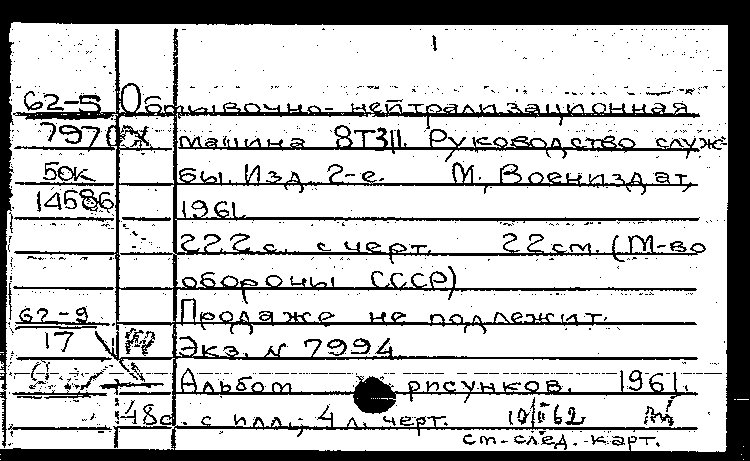 1
62-5 Обмывочно-нейтрализационная
797 машина 8Т311. Руководство служ-
50к бы. Изд. 2-е. М., Воениздат,
14586 1961.
222 с. с черт. 22 см. (М-во
обороны СССР)
62-9 Продаже не подлежит.
17 Экз. № 7994
Альбом рисунков. 1961.
48с. с илл., 4 л. черт. 10/II 62
ст. след. карт.